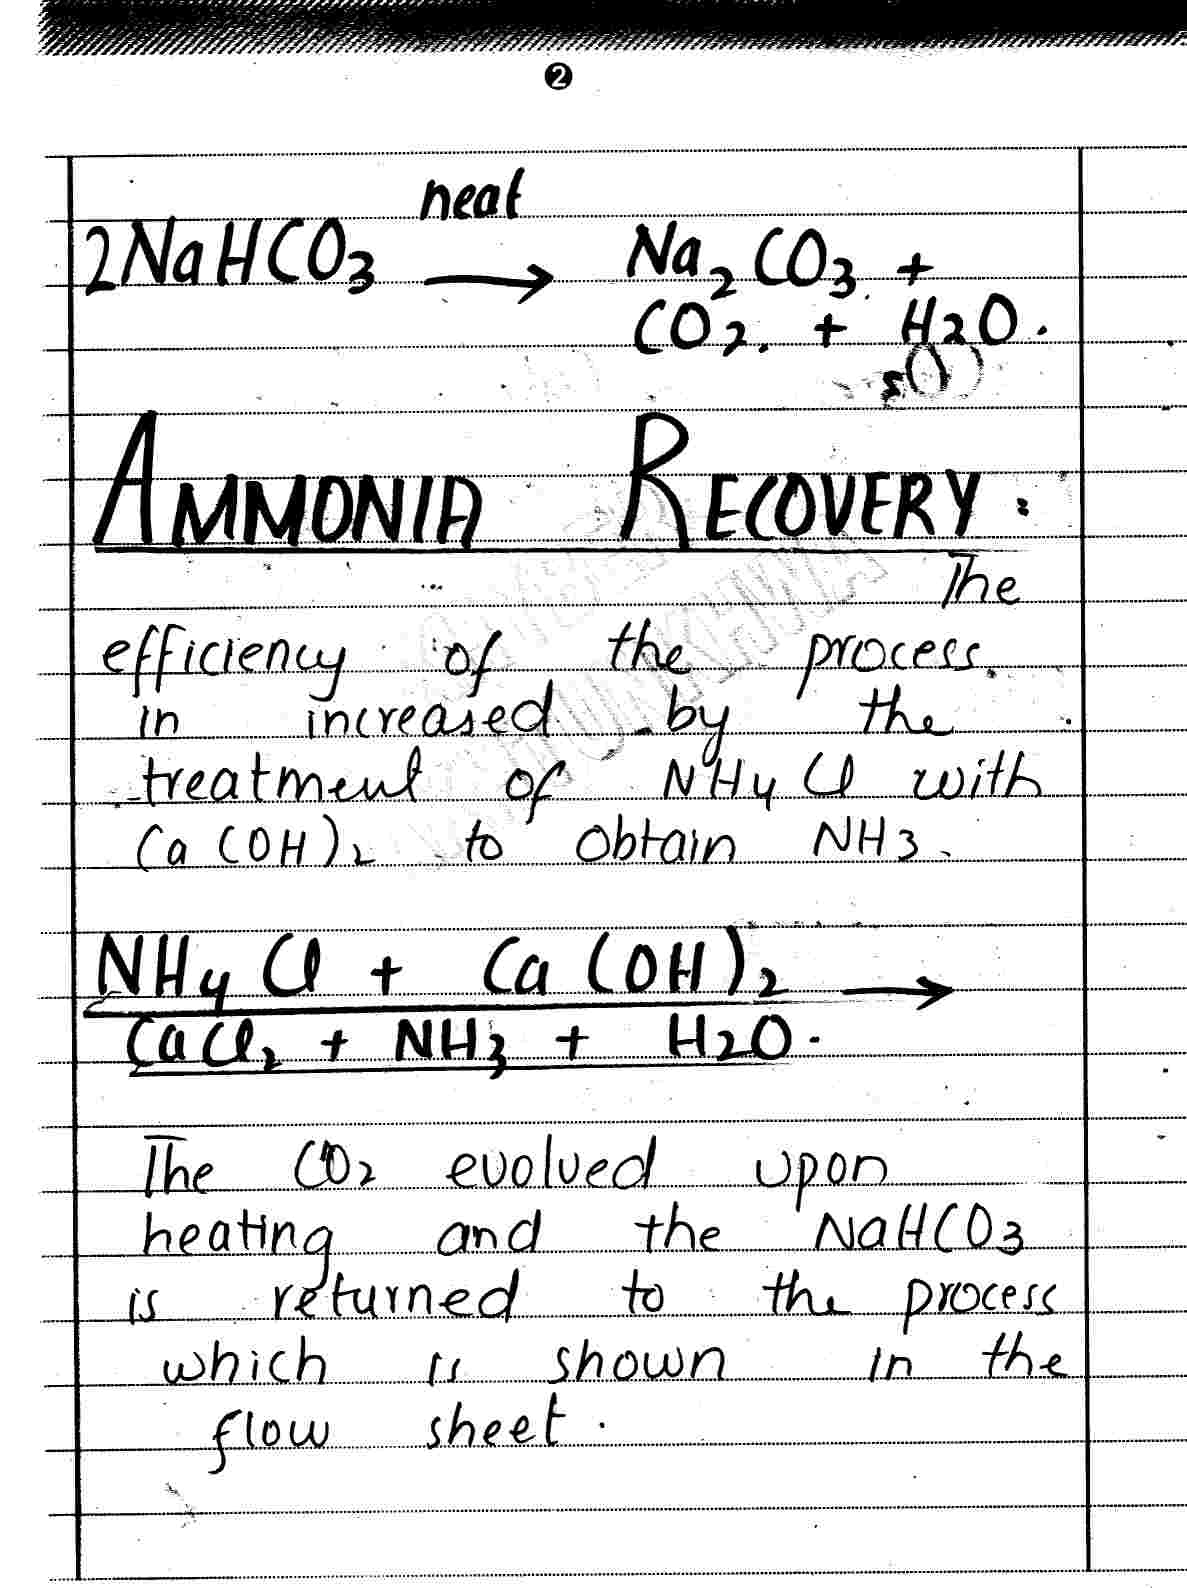 2
neat
2NaHCO3 → Na2CO3 +
CO2. + H2O.
AMMONIA RECOVERY:
The
efficiency of the process.
in increased by the
treatment of NH4Cl with
Ca(OH)2 to obtain NH3.
NH4Cl + Ca(OH)2 →
CaCl2 + NH3 + H2O.
The CO2 evolved upon
heating and the NaHCO3
is returned to the process
which is shown in the
flow sheet.